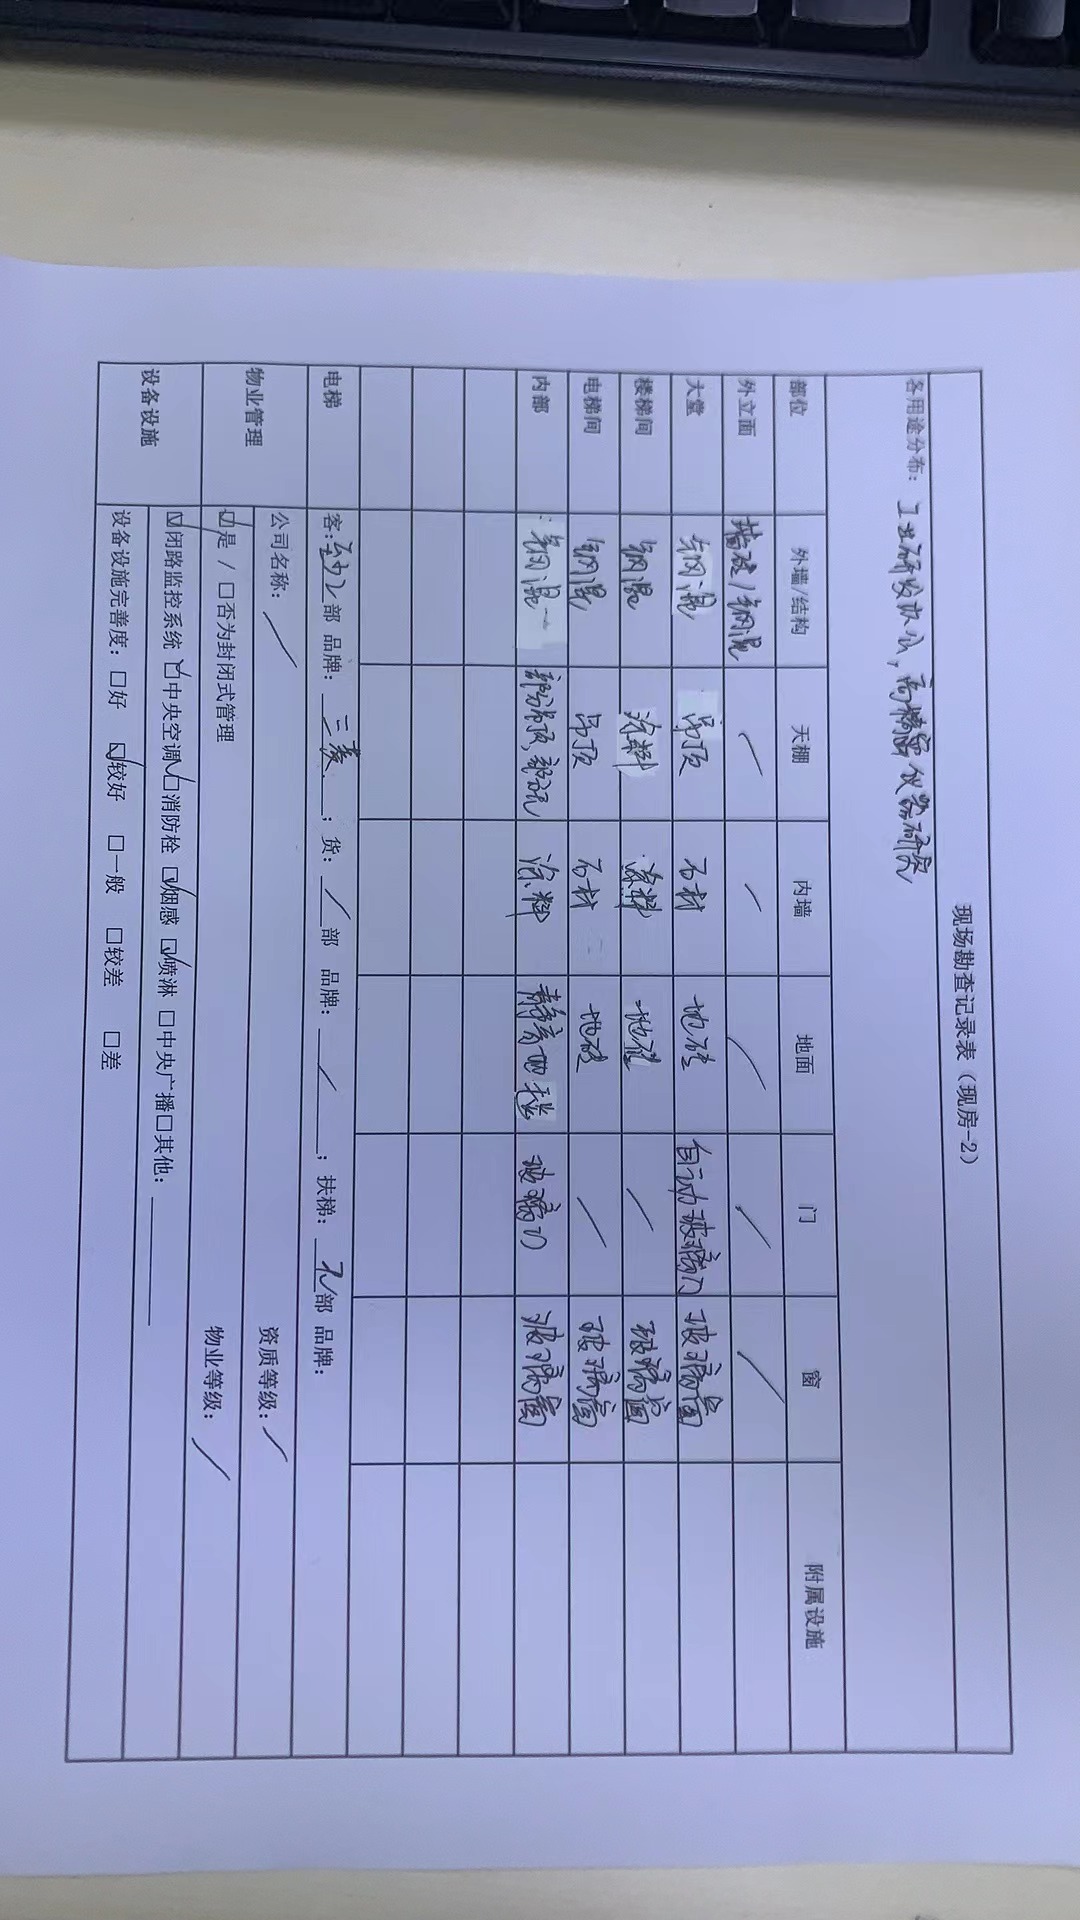 现场勘查记录表（现房-2）
各用途分布：工业研发办公，高精密仪器研究
部位 外墙/结构 天棚 内墙 地面 门 窗 附属设施
外立面 墙砖/钢混 / / / / /
大堂 钢混 吊顶 石材 地砖 自动玻璃门 玻璃窗
楼梯间 钢混 涂料 涂料 地砖 / 玻璃窗
电梯间 钢混 吊顶 石材 地砖 / 玻璃窗
内部 钢混 部分吊顶, 涂料 静音地毯 玻璃门 玻璃窗
电梯 客: 部 品牌: 三菱 ; 货: / 部 品牌: / ; 扶梯: 部 品牌:
物业管理 公司名称: / 资质等级: /
☑是 / □否为封闭式管理 物业等级: /
设备设施 ☑闭路监控系统 ☑中央空调 ☑消防栓 ☑烟感 ☑喷淋 □中央广播□其他:
设备设施完善度: □好 ☑较好 □一般 □较差 □差